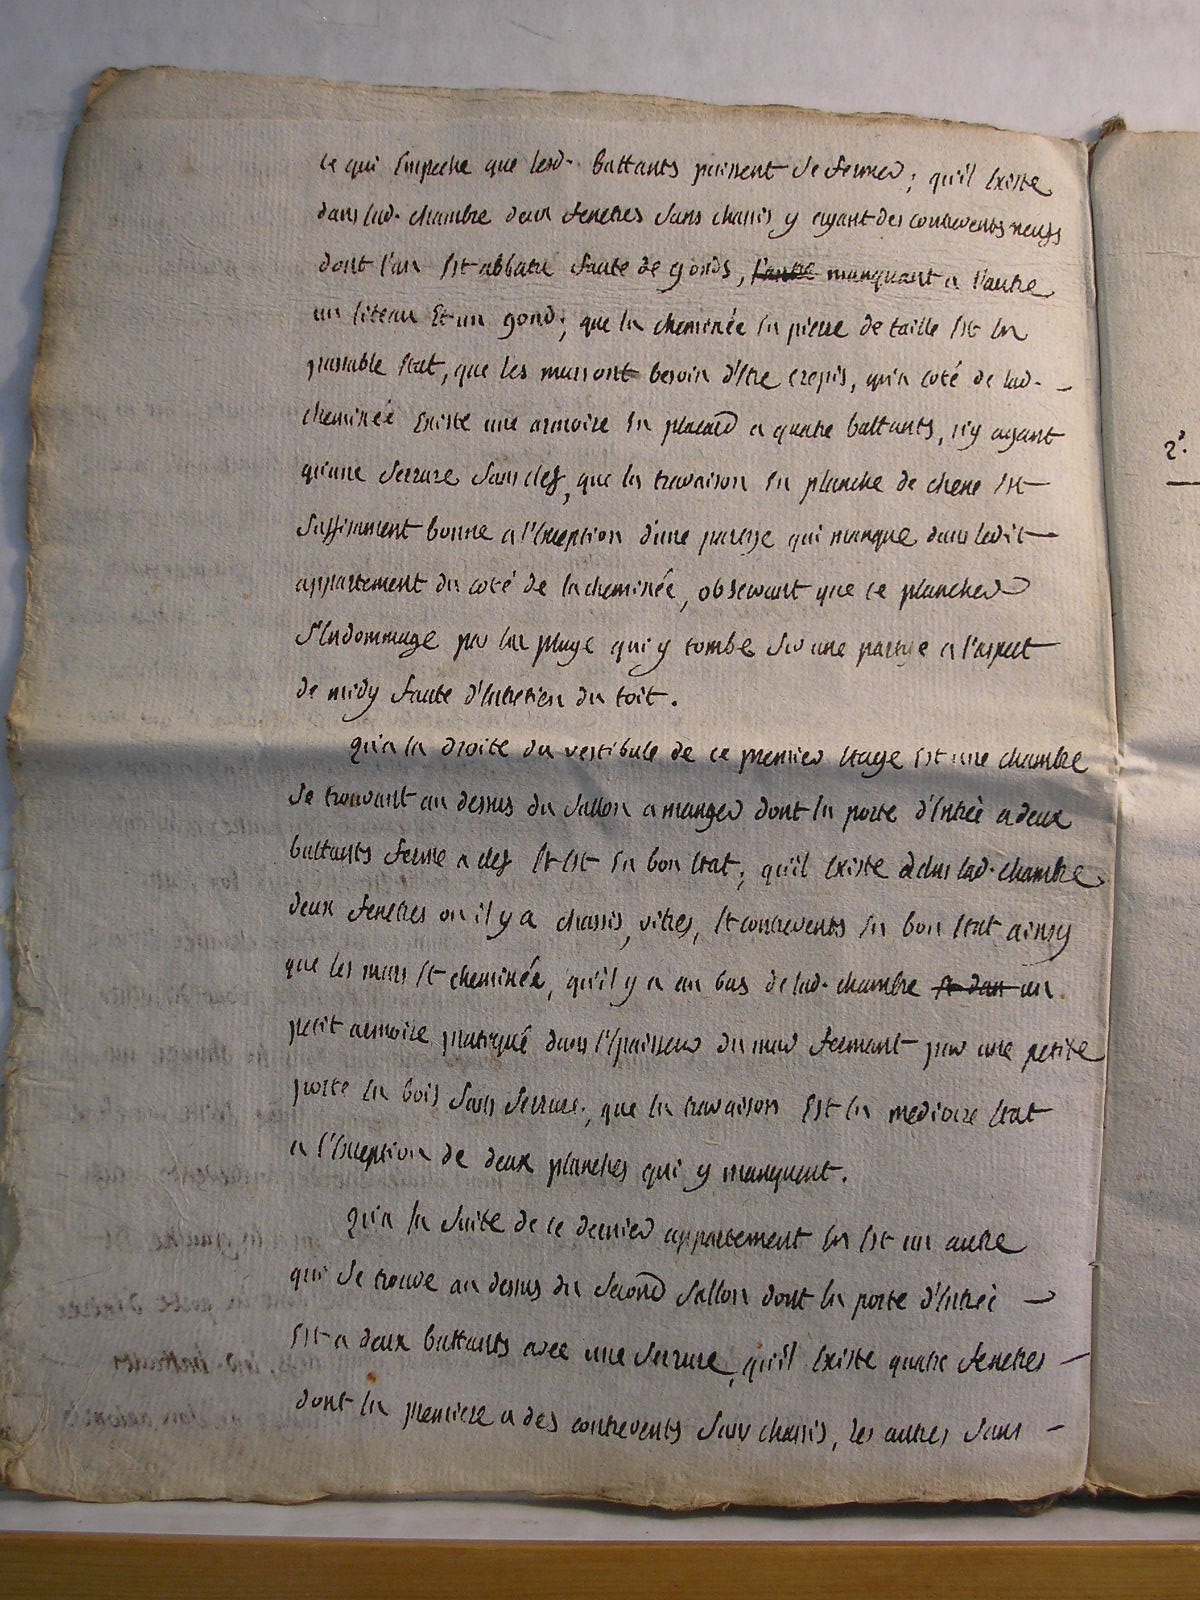 ce qui Empeche que lesd. battants puissent se fermer; qu'il Existe
dans lad. chambre deux fenetres sans chassis y ayant des contrevents neufs
dont l'un Est abbatu faute de gonds, l'autre manquant a l'autre
un liteau Et un gond; que la cheminée En pierre de taille Est En
passable Etat, que les murs ont besoin d'Etre crepis, qu'a coté de lad.
cheminée Existe une armoire En placard a quatre battants, n'y ayant
qu'une serrure sans clef, que la travaison En planche de chene Est
suffisament bonne a l'Exeption d'une partye qui manque dans ledit
appartement du coté de la cheminée, observant que ce plancher
s'Endommage par la pluye qui y tombe sur une partye a l'aspect
de midy faute d'Entretien du toit.
qu'a la droite du vestibule de ce premier Etage Est une chambre
se trouvant au dessus du sallon a manger dont la porte d'Entrée a deux
battants ferme a clef Et Est En bon Etat; qu'il Existe dans lad. chambre
deux fenetres ou il y a chassis, vitres, Et contrevents En bon Etat ainsy
que les murs Et cheminée, qu'il y a au bas de lad. chambre Et dans un
petit armoire pratiqué dans l'Epaisseur du mur fermant par une petite
porte En bois sans serrure; que la travaison Est En mediocre Etat
a l'Exeption de deux planches qui y manquent.
qu'a la suite de ce dernier appartement En Est un autre
qui se trouve au dessus du second sallon dont la porte d'Entrée
Est a deux battants avec une serrure, qu'il Existe quatre fenetres
dont la premiere a des contrevents sans chassis, les autres sans
2°.